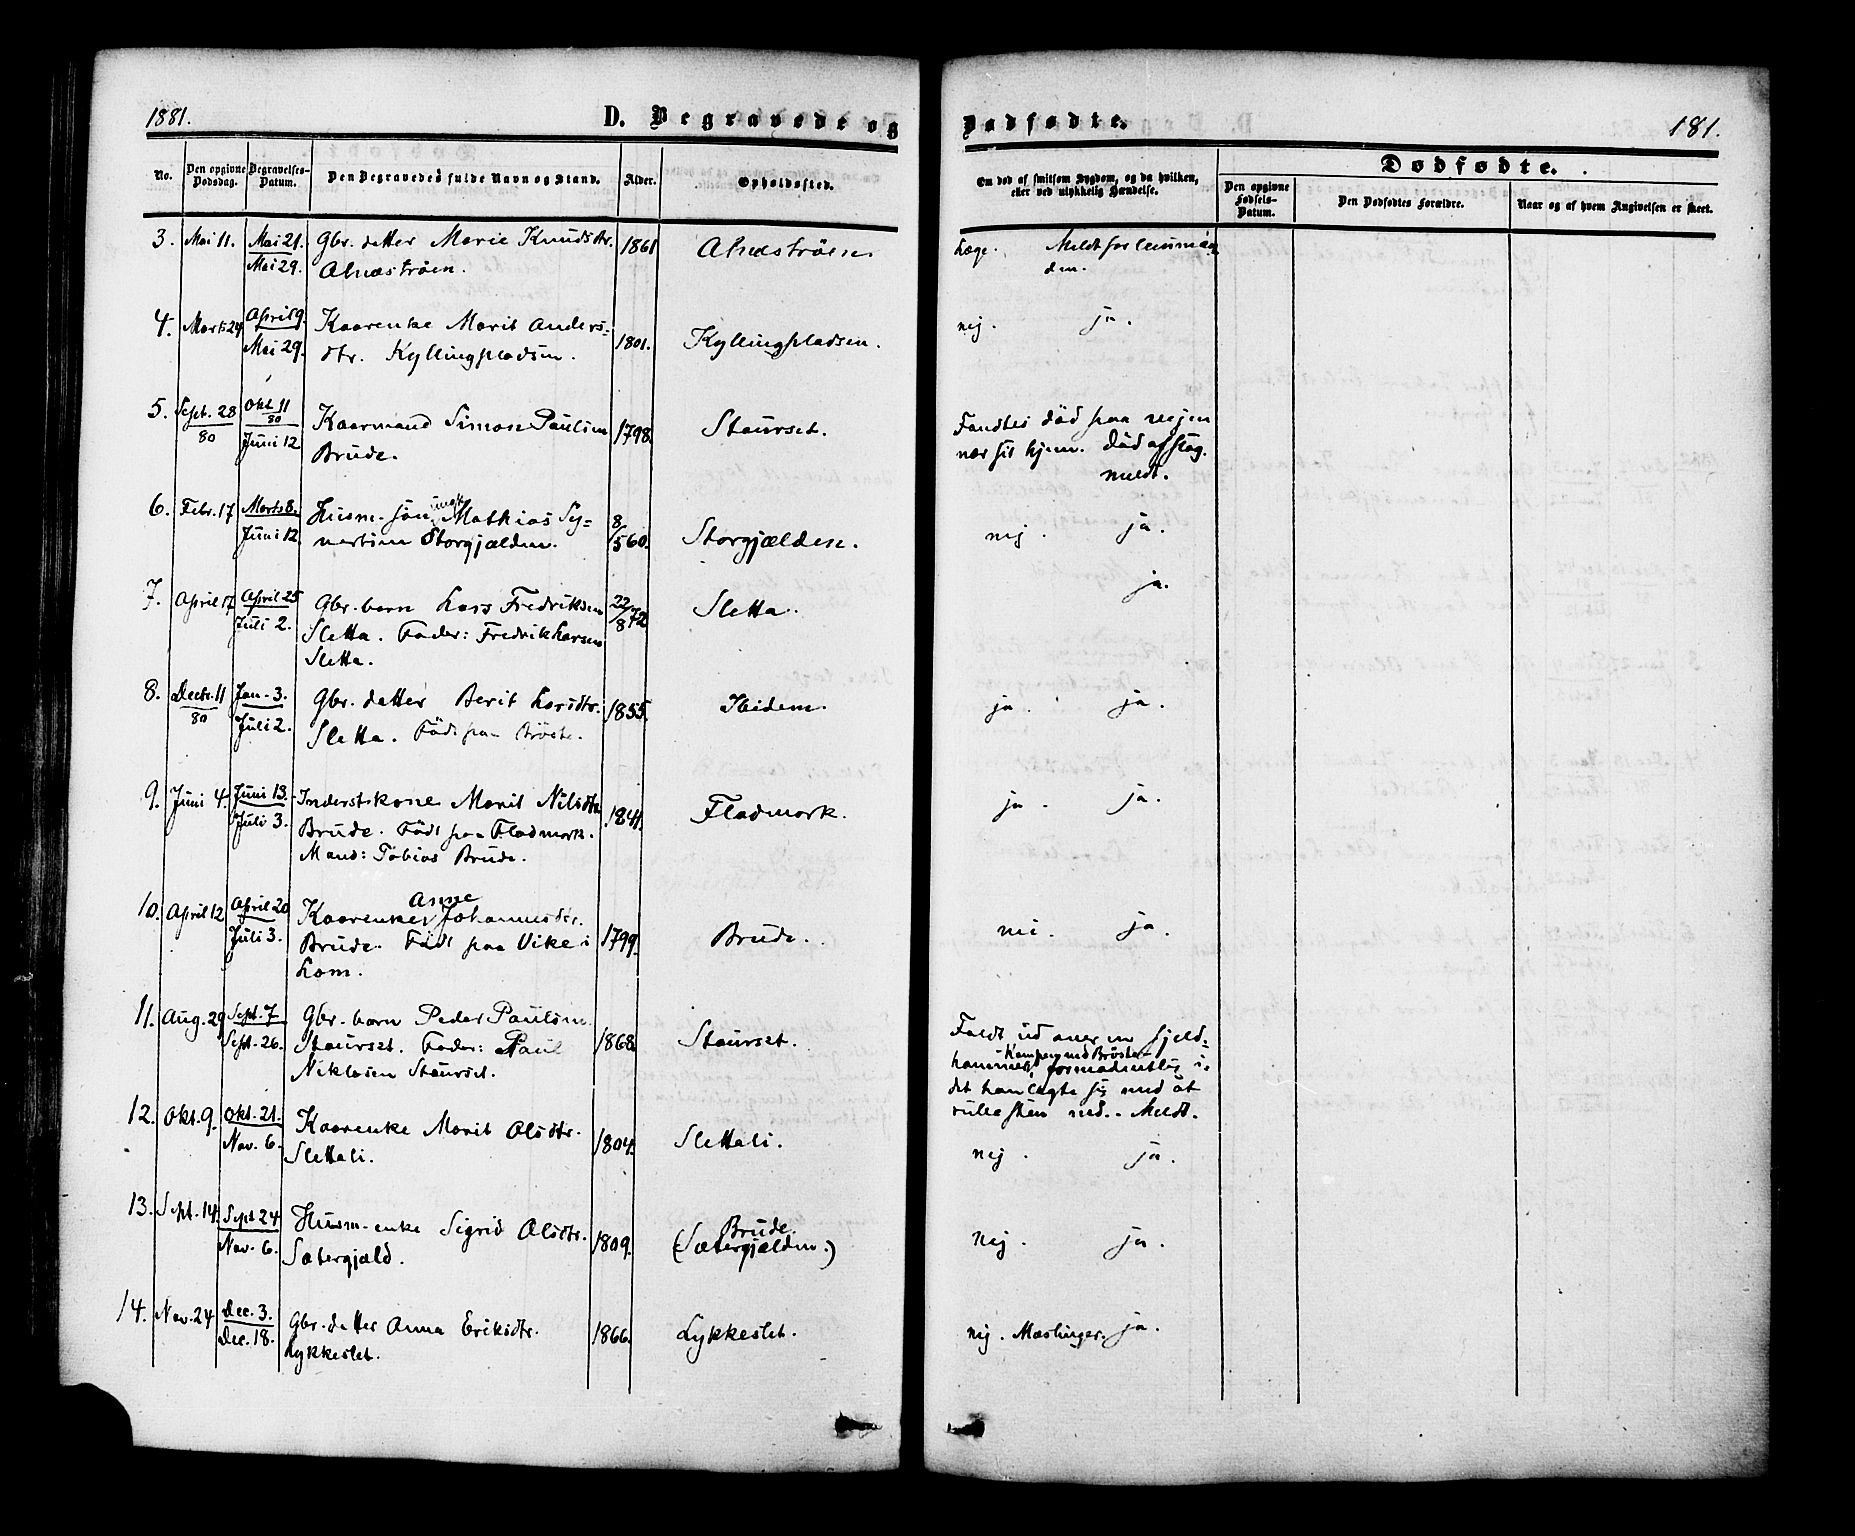 1881.
D. Begravede og Dødfødte.
181.
No.
Den opgivne Dødsdag.
Begravelses-Datum.
Den Begravedes fulde Navn og Stand.
Alder.
Opholdssted.
Om død af smitsom Sygdom, og da hvilken,
eller ved ulykkelig Hændelse.
Dødfødte.
Den opgivne Fødsels-Datum.
Den Dødfødtes Forældre.
Naar og af hvem Angivelsen er skeet.
3. Mai 11. Mai 21. Gbr. datter Marie Knudsdtr. 1861 Læge.
Mai 29.
4. Marts 24 April 9. Kaarenke Marit Anders- 1801. Kyllingpladsen. nej. ja.
Mai 29. dtr. Kyllingpladsen.
5. Sept. 28 Okt. 11 Kaarmand Simon Paulsen 1798. Staurset. Fandtes død paa vejen
80 80 Juni 12 Brude. nær sit hjem. Død af slag.
meldt.
6. Febr. 17 Marts 8. Husm. søn ungk. Mathias Sy- 8 Storgjælden. nej. ja.
Juni 12. vertsen Storgjælden. /5 60.
7. April 17 April 25 Gbr. barn Lars Fredriksen 22 Sletta. ja.
Juli 2. Sletta. Fader: Fredrik Larsen /8 72
Sletta.
8. Decbr. 11 Jan. 3. Gbr. datter Berit Larsdtr. 1855. Ibidem. ja. ja.
80 Juli 2. Sletta. Född paa Brøste.
9. Juni 4. Juni 13. Inderstkone Marit Nilsdtr. 1841. Fladmork. ja. ja.
Juli 3. Brude. Född paa Fladmork.
Mand: Tobias Brude.
10. April 12 April 20 Kaarenke Anne Johannesdtr. 1799. Brude. nei. ja.
Juli 3. Brude. Född paa Vike i
Lom.
11. Aug. 29 Sept. 7 Gbr. barn Peder Paulsen 1868. Staurset. Faldt ud over en fjeld-
Sept. 26. Staurset. Fader: Paul hammer, formodentlig i
Niklasen Staurset. det han lagte sig med at
rulle sten ned. Meldt.
12. Okt. 9. Okt. 21. Kaarenke Marit Olsdtr. 1804. Slettali. nej. ja.
Nov. 6. Slettali.
13. Sept. 14. Sept 24 Husm. enke Sigrid Olsdtr. 1809. Brude. nej. ja.
Nov. 6. Sætergjæld. (Sætergjælden.)
14. Nov. 24 Dec. 3. Gbr. datter Anna Eriksdtr. 1866. Lykkeslet. nej. Mæslinger. ja.
Dec. 18. Lykkeslet.